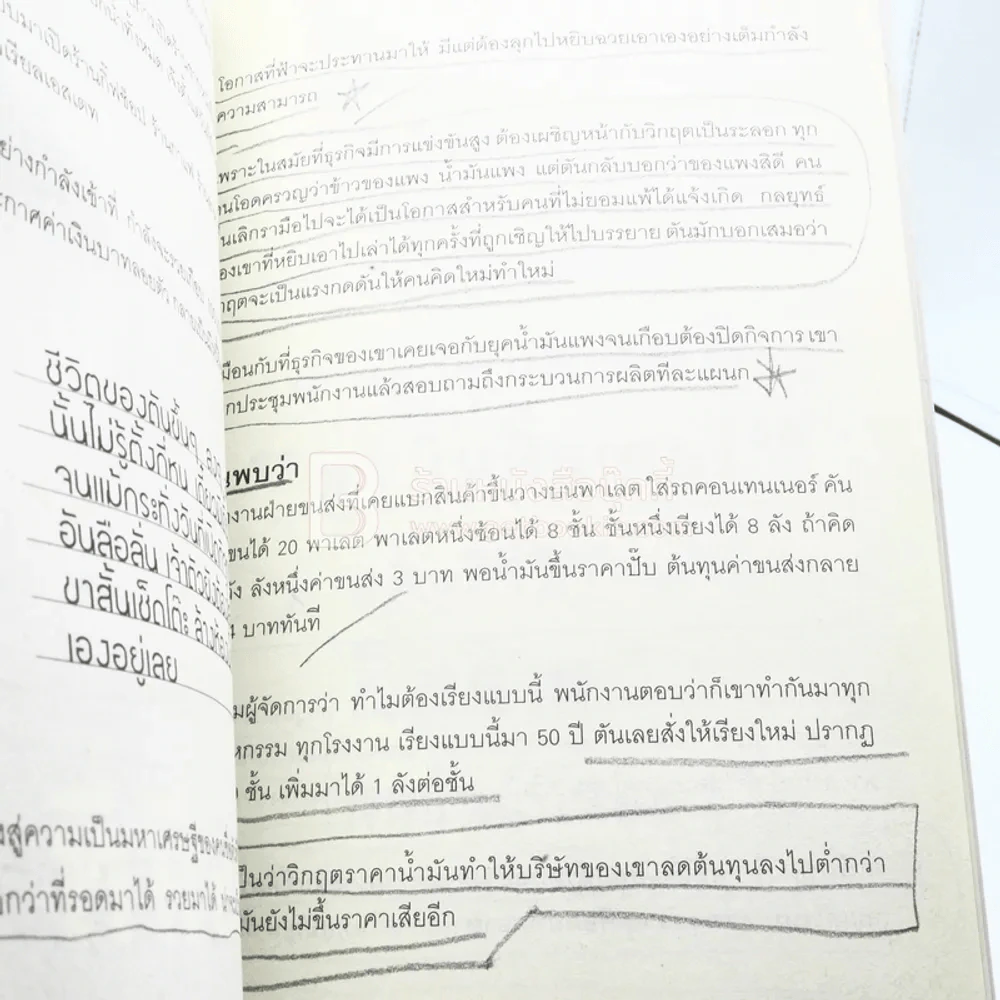 บบมาเปิดร้านกิ๊ฟช็อป ร้านกาแฟ
เรียลเอสเตท
ย่างกำลังเข้าที่ กำลังจะรวยเกือบ
ะกาศค่าเงินบาทลอยตัว กลายเป็น
ชีวิตของตันขึ้นๆ ลงๆ
นั้นไม่รู้ตั้งกี่หน
จนแม้กระทั่งวันที่
อันลือลั่น เจ้าตัวยังต้อง
ขาสั้นเช็ดโต๊ะ ล้างห้อง
เองอยู่เลย
งสู่ความเป็นมหาเศรษฐีของ
กว่าที่รอดมาได้ รวยมาได้
โอกาสที่ฟ้าจะประทานมาให้ มีแต่ต้องลุกไปหยิบฉวยเอาเองอย่างเต็มกำลัง
ความสามารถ
เพราะในสมัยที่ธุรกิจมีการแข่งขันสูง ต้องเผชิญหน้ากับวิกฤตเป็นระลอก ทุก
นโอดครวญว่าข้าวของแพง น้ำมันแพง แต่ตันกลับบอกว่าของแพงสิดี คน
นเลิกรามือไปจะได้เป็นโอกาสสำหรับคนที่ไม่ยอมแพ้ได้แจ้งเกิด กลยุทธ์
องเขาที่หยิบเอาไปเล่าได้ทุกครั้งที่ถูกเชิญให้ไปบรรยาย ตันมักบอกเสมอว่า
กฤตจะเป็นแรงกดดันให้คนคิดใหม่ทำใหม่
มือนกับที่ธุรกิจของเขาเคยเจอกับยุคน้ำมันแพงจนเกือบต้องปิดกิจการ เขา
กประชุมพนักงานแล้วสอบถามถึงกระบวนการผลิตทีละแผนก
นพบว่า
งานฝ่ายขนส่งที่เคยแบกสินค้าขึ้นวางบนพาเลต ใส่รถคอนเทนเนอร์ คัน
ขนได้ 20 พาเลต พาเลตหนึ่งซ้อนได้ 8 ชั้น ชั้นหนึ่งเรียงได้ 8 ลัง ถ้าคิด
ลังหนึ่งค่าขนส่ง 3 บาท พอน้ำมันขึ้นราคาปั๊บ ต้นทุนค่าขนส่งกลาย
4 บาททันที
มผู้จัดการว่า ทำไมต้องเรียงแบบนี้ พนักงานตอบว่าก็เขาทำกันมาทุก
หกรรม ทุกโรงงาน เรียงแบบนี้มา 50 ปี ตันเลยสั่งให้เรียงใหม่ ปรากฏ
ชั้น เพิ่มมาได้ 1 ลังต่อชั้น
ป็นว่าวิกฤตราคาน้ำมันทำให้บริษัทของเขาลดต้นทุนลงไปต่ำกว่า
มันยังไม่ขึ้นราคาเสียอีก